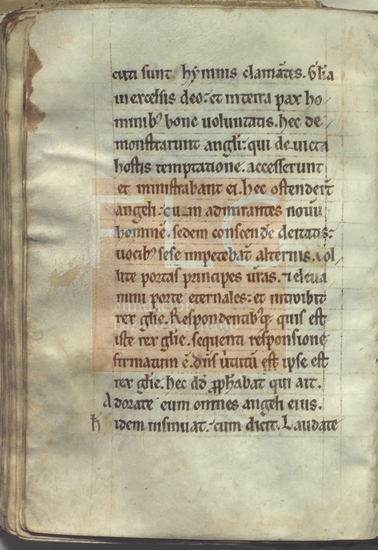 cuti sunt hymnis clamātes. Gl̄ia
in excelsis deo. et in terra pax ho
minib' bone voluntatis. hec de
monstrarunt angl̄i: qui devicta
hostis temptatione. accesserunt
et ministrabant ei. hec ostender̄t
angeli. cū admirantes novū
hominē. sedem conscendē deitatis:
vocib' sese impetebāt alternis.
lite portas principes vr̄as. 7 eleva
mini porte eternales: et introibit
rex gl̄ie. Respondentib'q; quis est
iste rex gl̄ie. sequenti responsione
firmatum ē. dn̄s v̄tutū est ipse est
rex gl̄ie. hec dd̄ pph̄abat qui ait.
Adorate eum omnes angeli eius.
h idem insinuat. cum dicit. Laudate